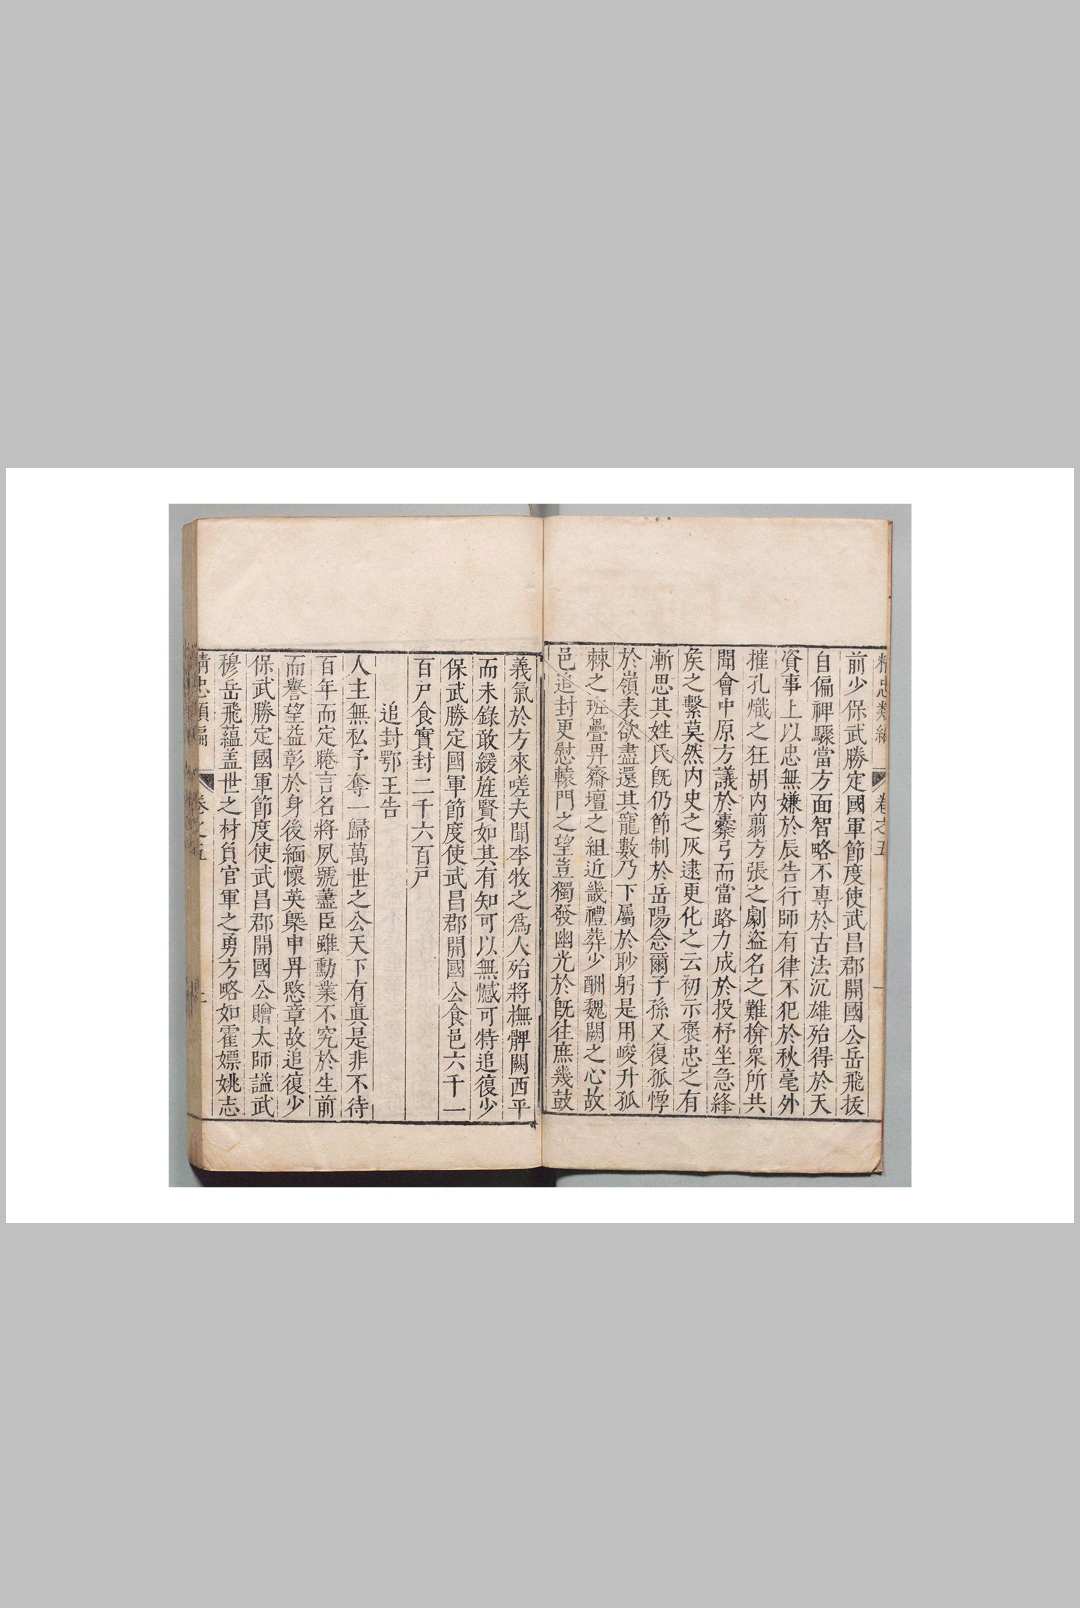 精忠類編 卷之五 一
前少保武勝定國軍節度使武昌郡開國公岳飛拔
自偏裨驟當方面智略不專於古法沉雄殆得於天
資事上以忠無嫌於辰告行師有律不犯於秋毫外
摧孔熾之狂胡內翦方張之劇盜名之難揜眾所共
聞會中原方議於櫜弓而當路力成於投杼坐急絳
矦之繫莫然內史之灰逮更化之云初示褒忠之有
漸思其姓氏旣仍節制於岳陽念爾子孫又復孤惸
於嶺表欲盡還其寵數乃下屬於眇躬是用峻升孤
棘之班疊畀齋壇之組近畿禮葬少酬魏闕之心故
邑追封更慰轅門之望豈獨發幽光於旣往庶幾鼓
義氣於方來嗟夫聞李牧之爲人殆將撫髀闕西平
而未錄敢緩旌賢如其有知可以無憾可特追復少
保武勝定國軍節度使武昌郡開國公食邑六千一
百戶食實封二千六百戶
追封鄂王告
人主無私予奪一歸萬世之公天下有眞是非不待
百年而定睠言名將夙號藎臣雖勳業不究於生前
而譽望益彰於身後緬懷英槩申畀愍章故追復少
保武勝定國軍節度使武昌郡開國公贈太師諡武
穆岳飛蘊盖世之材負官軍之勇方略如霍嫖姚志
精忠類編 卷之五